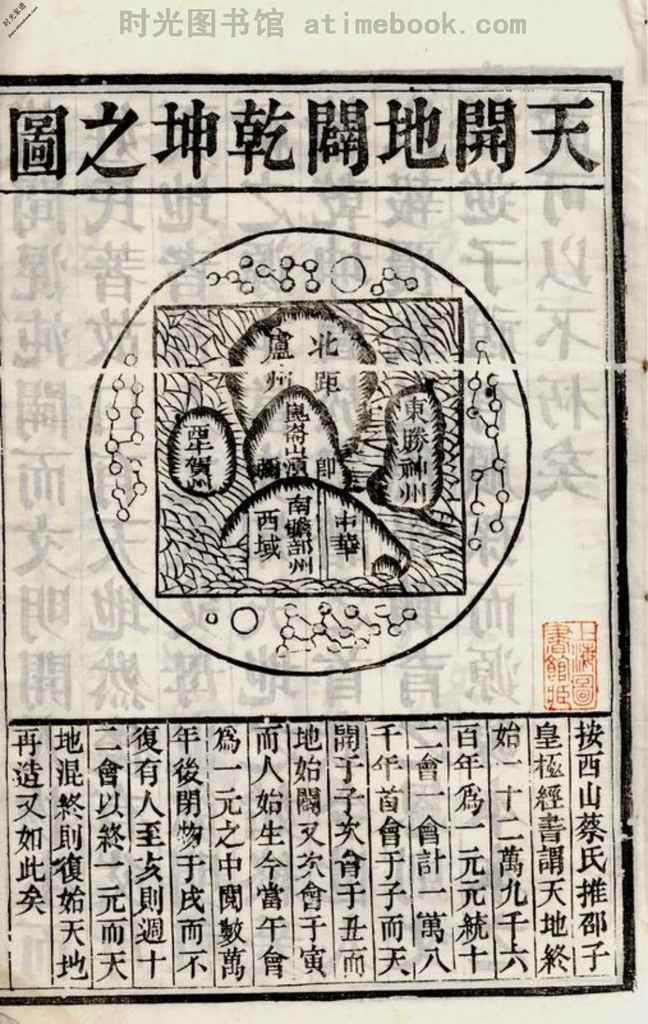 时光图书馆 atimebook.com
天開地闢乾坤之圖
北距
盧州
東勝神州
崑崙山頂
即
西牛賀州
南瞻部州
中華
西域
按西山蔡氏推邵子
皇極經書謂天地終
始一十二萬九千六
百年為一元元統十
二會一會計一萬八
千年首會于子而天
開于子次會于丑而
地始闢又次會于寅
而人始生今當午會
為一元之中閱數萬
年後閉物于戌而不
復有人至亥則週十
二會以終一元而天
地混終則復始天地
再造又如此矣